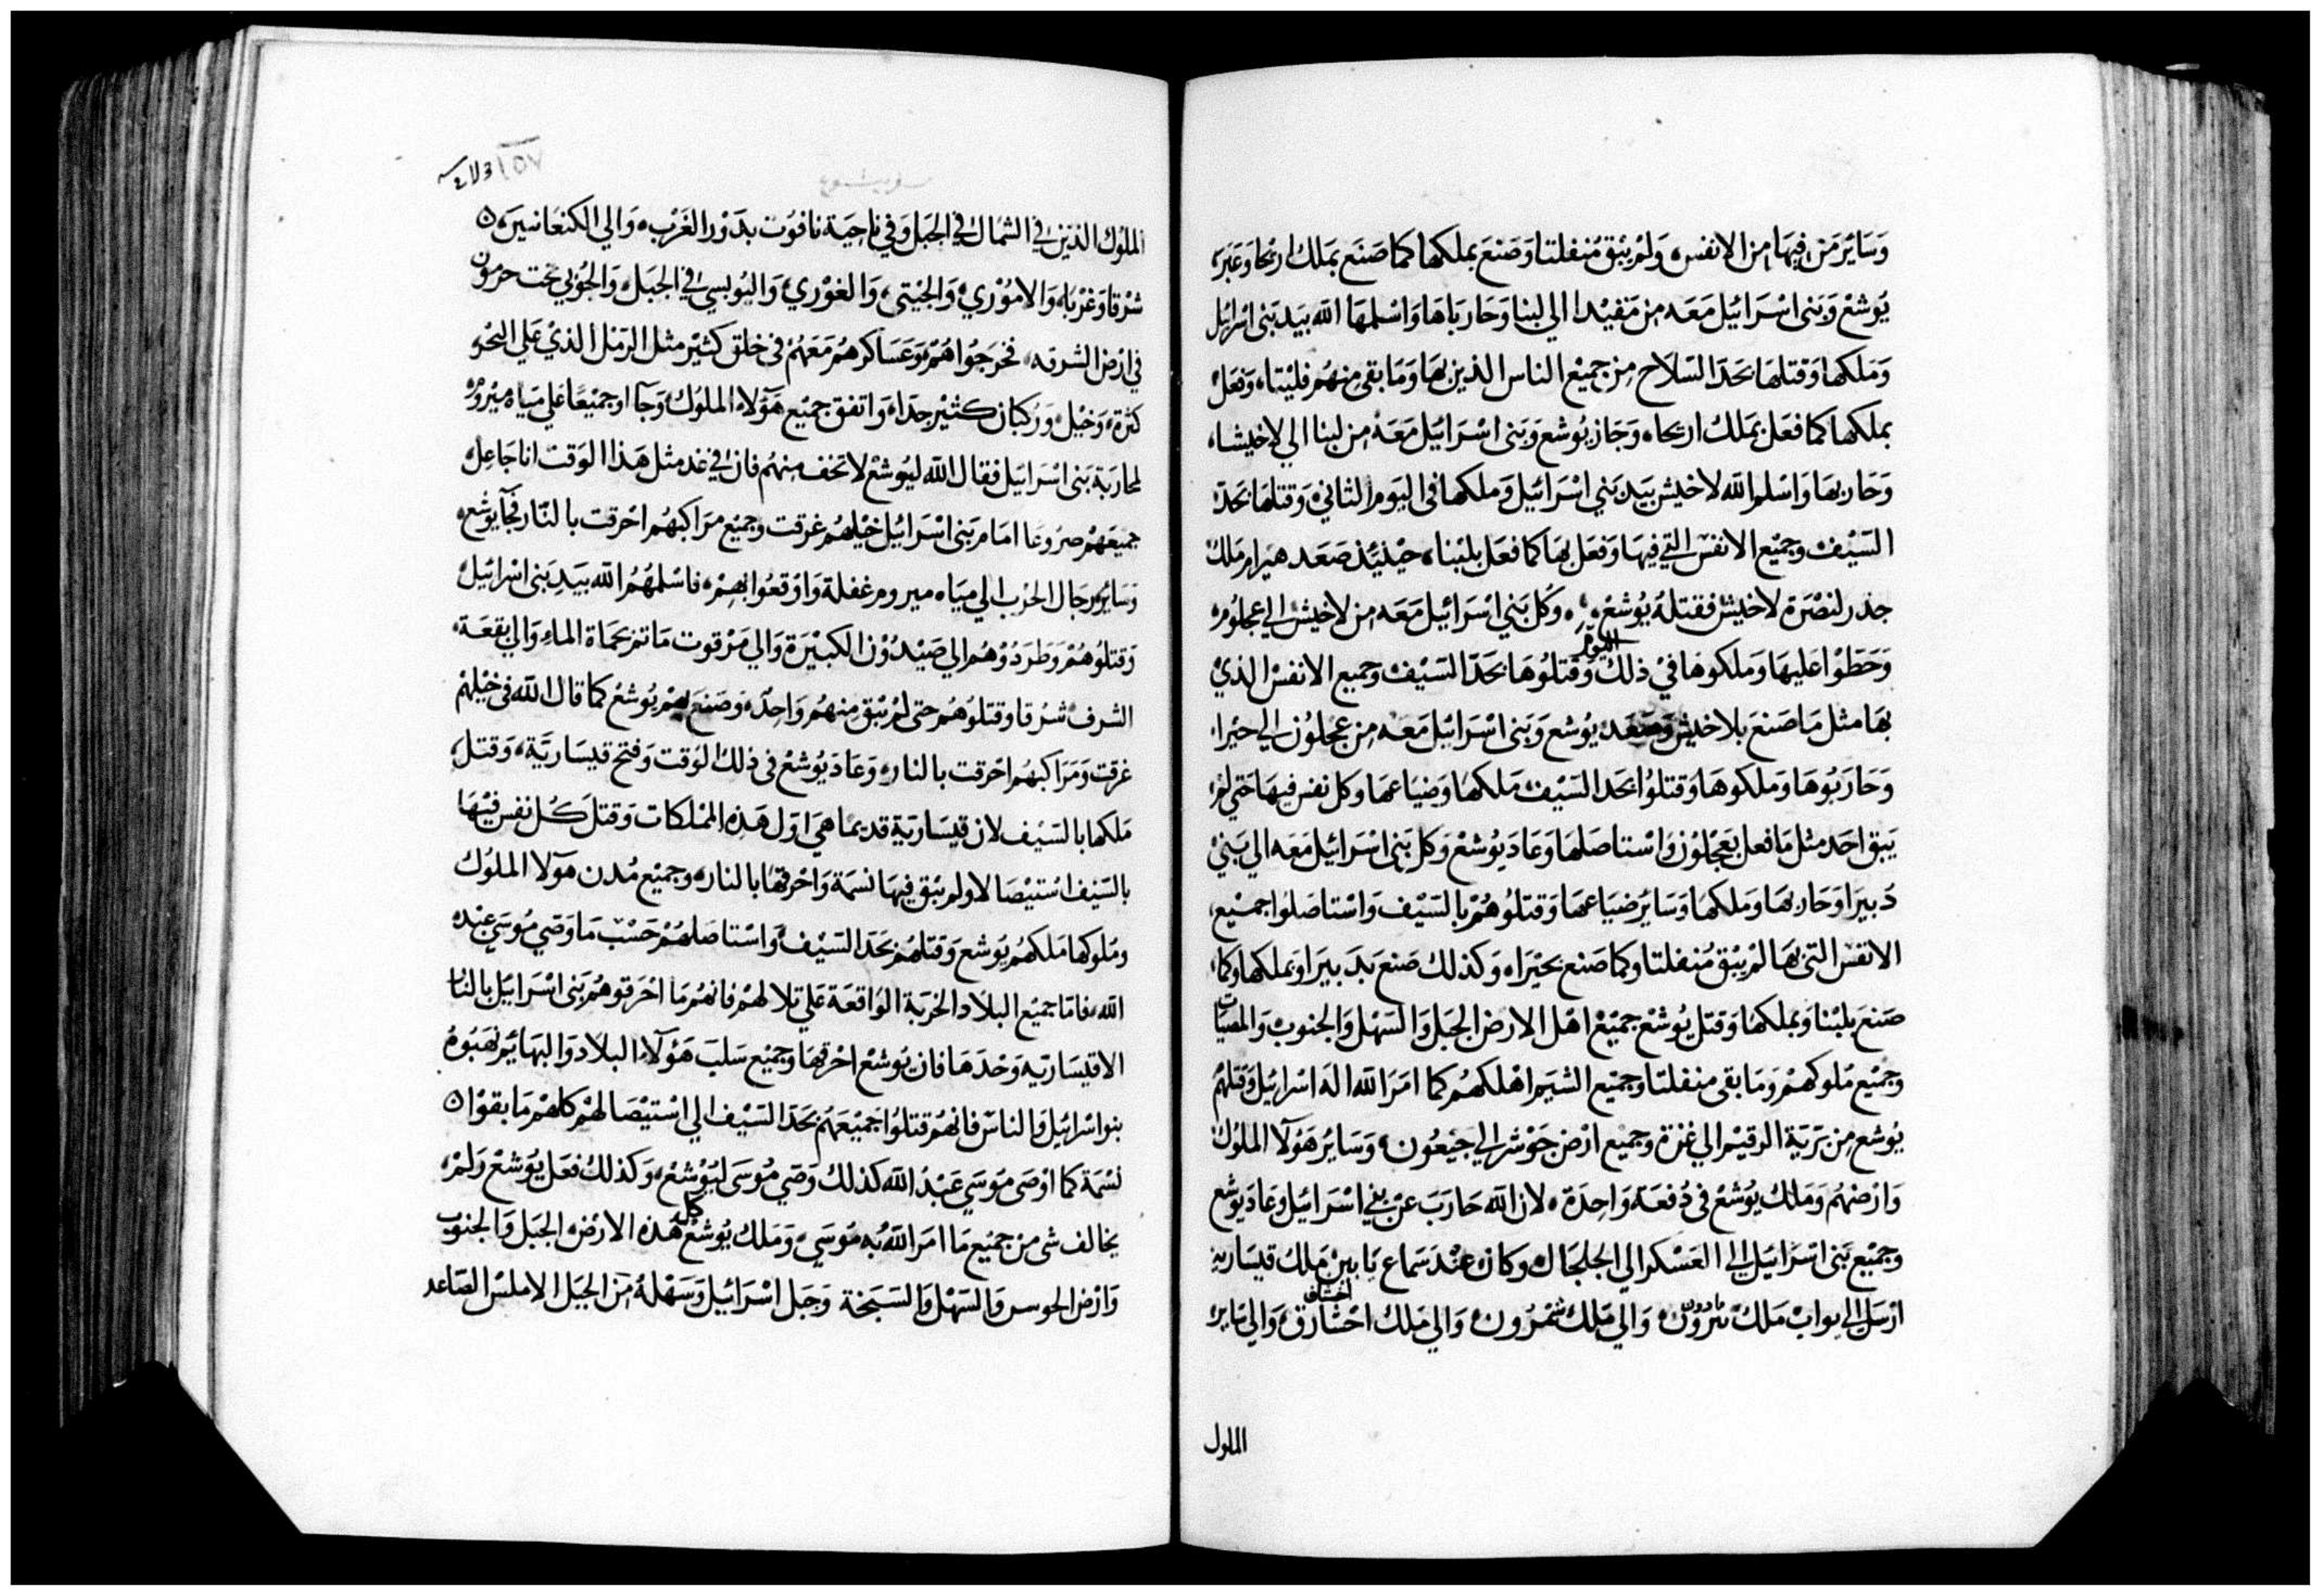 وَسَايُر مَن فيهَا من الانفس، وَلم يبْق مُنفلتا وَصَنعَ بملكها كما صَنَع بمَلك اريحا وَعَبَر
يُوشع وَبَنى اسْرَائيل مَعَه من مَقيْدا الي لبنا وَحَارباهَا وَاسْلمهَا الله بيَد بَنى اسْرائيل
وَمَلكها وَقتلهَا بحَد السّلاح من جميْع الناس الذين بهَا وَمَا بقى منهُم فليْتا، وَفعَل
بملكهَا كما فعَل بمَلك اريحا، وَجَاز يُوشع وَبَنى اسْرَائيل مَعَهُ من لبنا الي لاخيشا،
وَحَاربهَا وَاسْلم الله لاخيش بيَد بَني اسْرَائيل وَملكها في اليَوم الثاني، وَقتلهَا بحَد
السَيْف وجميْع الانفس التي فيهَا وَفعَل بهَا كما فعَل بلبْنا، حيْنيْذ صَعَد هيرام مَلك
جذر لنصْرَة لاخيش فقتلهُ يُوشع، وكل بَني اسْرَائيل مَعَه من لاخيش الي عجلُوم،
وَحَطوْا عَليهَا وَملكوهَا فيْ ذلك اليوم وَقتلُوهَا بحَد السَيْف وجميع الانفس الذيْ
بهَا مثل مَا صَنعَ بلاخيش وَصَعَد يُوشع وَبَنى اسْرَائيل مَعَه من عجلُون الي حيْرا،
وَحَارَبُوهَا وَملكوهَا وَقتلُوا بحَد السَيْف مَلكهَا وَضيَاعهَا وَكل نفس فيهَا حَتي لم
يَبق احَد مثل مَا فعل بعَجْلُون وَاسْتاصَلهَا وَعَاد يُوشعْ وَكل بَنى اسْرَائيل مَعَه الي بَنيْ
دَبيَرا وَحَاربهَا وَملكهَا وَسَايُر ضيَاعهَا وَقتلُوهُمْ بالسَيْف وَاسْتاصَلوُا جميْع
الانفس التي بهَا لمْ يبْق مُنفلتا وكما صَنع بحيْرَا، وَكذلك صَنعَ بدَبيرَا وَبملكها وكما
صَنعَ بلبْنا وَبملكهَا وَقتل يُوشعْ جميْعْ اهْل الارض الجبَل وَالسَهْل وَالجنوب وَالمصبّات
وجميْع مُلوكهمْ وَمَا بقى منفلتا وجميْع الشيَم اهْلكهمْ كما امَرَ الله الَه اسْرائيل وَقتلهُم
يُوشع من بَريَة الرقيْم الي غزة وجميع ارْض جَوْشر الي جبْعُون، وَسَايُر هَؤلآ الملوُك
وَارْضهُم وَمَلك يُوشعْ في دُفعَة وَاحِدَة، لان الله حَارَبَ عَنْ بني اسْرَائيل وَعَاد يوُشع
وجميْع بَنى اسْرَائيل الي العَسْكر الي الجلجَال وكان عنْدَ سَمَاع يَابينْ مَلك قيسَارية
ارْسَل الي يواب مَلك مادون وَالي مَلك شمرُون وَالي مَلك احْشارق اخشاف وَالي سَاير
الملوك
الملوُك الذين في الشمَال في الجَبل وَفي نَاحيَة نافوُت بدَوْر الغَرْب، وَالي الكنعَانيين
شرْقا وَغرْبا، وَالاموُريْ وَالحيْتى، وَالغوْريْ، وَاليُوبسى في الجبَل، وَالجُوبي تحت حرمون
في ارْض الشرقه، فخرجُوا هُمْ وَعَسَاكرهُمْ مَعَهُمْ في خلق كثيْر مثل الرَمْل الذيْ عَلي البَحْر
كثرة، وَخيْل، وَرُكبان كثيْر جدا، وَاتفق جميْع هَؤلاء الملُوك، وَجَآاو جميْعًا عَلي ميَاه ميْرُوم
لمحارَبة بَنى اسْرَائيل فقال الله ليُوشعْ لا تخف منهُم فان في غد مثل هَذا الوَقت انا جَاعل
جميْعَهُمْ صرُوعًا امَام بَنى اسْرَائيل خيْلهُم غرقت وجميْع مرَاكبهُم احْرقت بالنّار فجآ يوشع
وَسَايُر رجَال الحَرْب الي ميَاه ميروم غفلة وَاوْقعُوا بهمْ، فاسْلمهُمُ الله بيَد بَنى اسْرَائيل
وَقتلُوهُمْ وَطرَدُوْهُم الي صَيْدُوْن الكبيْرَة وَالي مَرْقوت مَاتم بحمَاة الماء وَالي بقعَة
الشرف شرْقا وَقتلوُهُمْ حتى لمْ يبْق منهُم وَاحِد، وَصَنع لهمْ يُوشعْ كما قال الله في خيْلهمْ
غرقت وَمَرَاكبهُم احْرقت بالنار، وَعَاد يُوشعْ في ذلك الوَقت وَفتح قيسَاريَة، وَقتل
مَلكها بالسَيْف لان قيسَاريَة قديما هيَ اوّل هَذه الممْلكات وَقتلَ كُل نفس فيْهَا
بالسَيْف اسْتيْصَالا ولم يبْق فيها نسَمة وَاحْرقهَا بالنار، وجميْع مُدن هَؤلآ الملوُك
ومُلوكها مَلكهمْ يُوشع وَقتلهُمْ بحَد السَيْف، وَاسْتاصَلهُمْ حَسْب مَا وَصّي مُوسَي عَبْد
الله، فامَا جميْع البلاد الخرَبة الوَاقعَة عَلي تلالهمْ فانهُم مَا احْرَقوهُم بَنى اسْرَائيل بالنار
الا قيْسَاريّه وَحْدهَا فان يُوشعْ احْرقهَا وجميْع سَلبَ هَؤلآء البلاد وَالبهَايُم نهبُوهُ
بنو اسْرَائيل وَالناس فانهُم قتلُوا جميْعَهُم بحَد السَيْف الي اسْتيْصَالهمْ كلهمْ مَا بقوْا
نسَمة كما اوْصَى مُوسَي عَبْدُ الله كذلك وَصّي مُوسَى ليُوشعْ، وَكذلكْ فعَل يُوشعْ وَلمْ
يخالف شى من جميْع مَا امَر الله به مُوسَي، وَمَلك يُوشعْ كل هَذه الارْض الجبَل وَالجنوب
وَارْض الجوسر وَالسَهْل وَالسَبخة وَجبَل اسْرَائيل وَسَهْلهُ من الجبَل الاملس الصَاعد